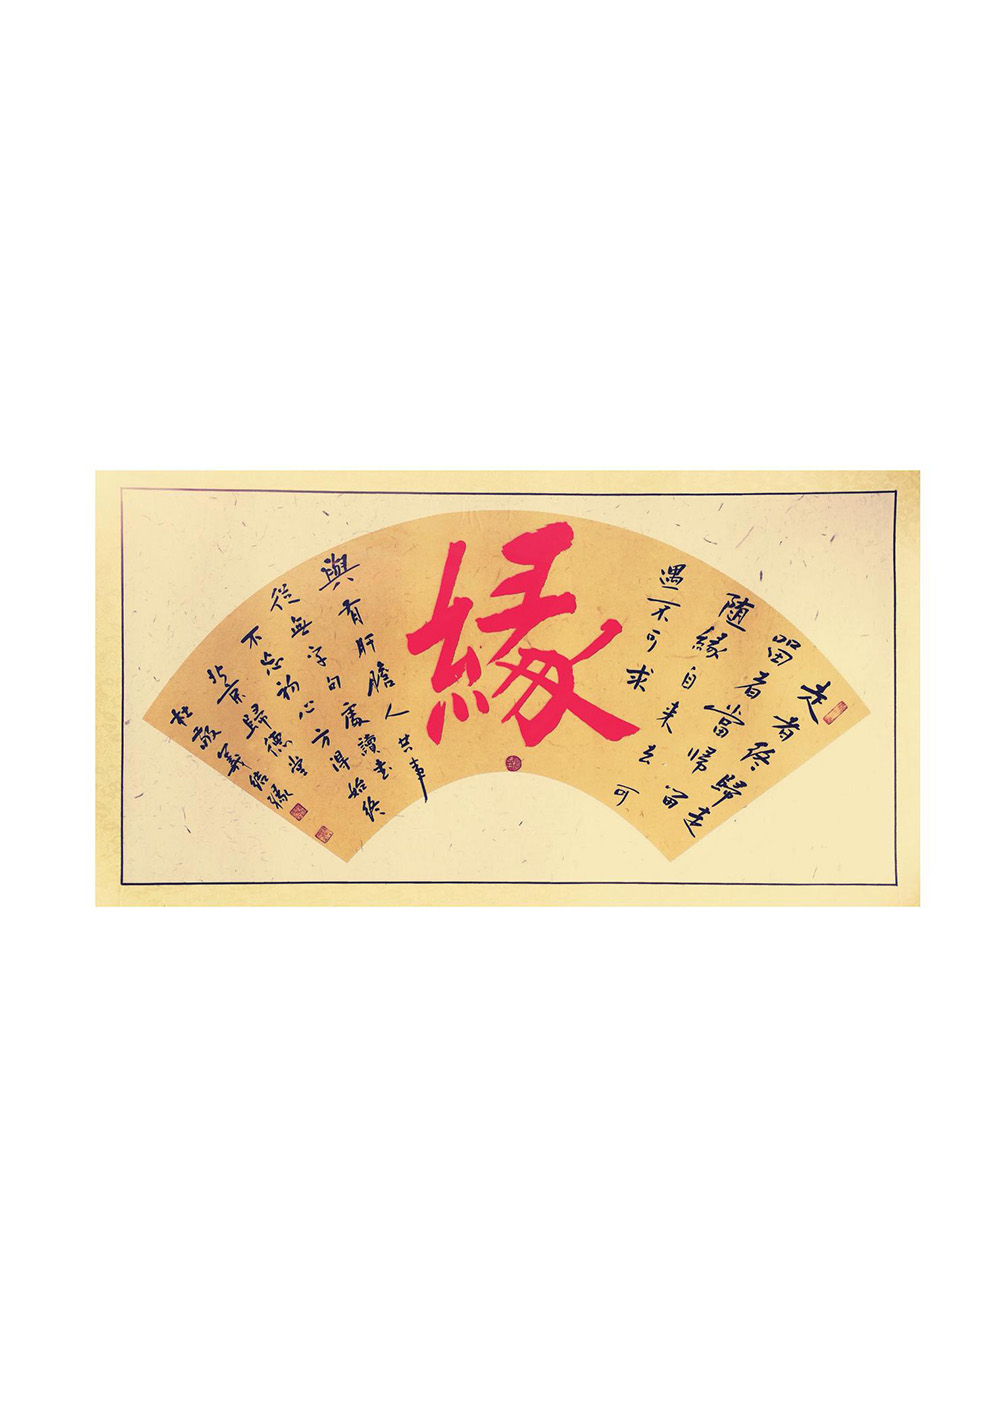 走者終歸走
留者當帰留
随緣自来去可
遇不可求
緣
與有肝膽人共事
從無字句處讀書
不忘初心方得始終
北京歸德堂
杜敬義結緣